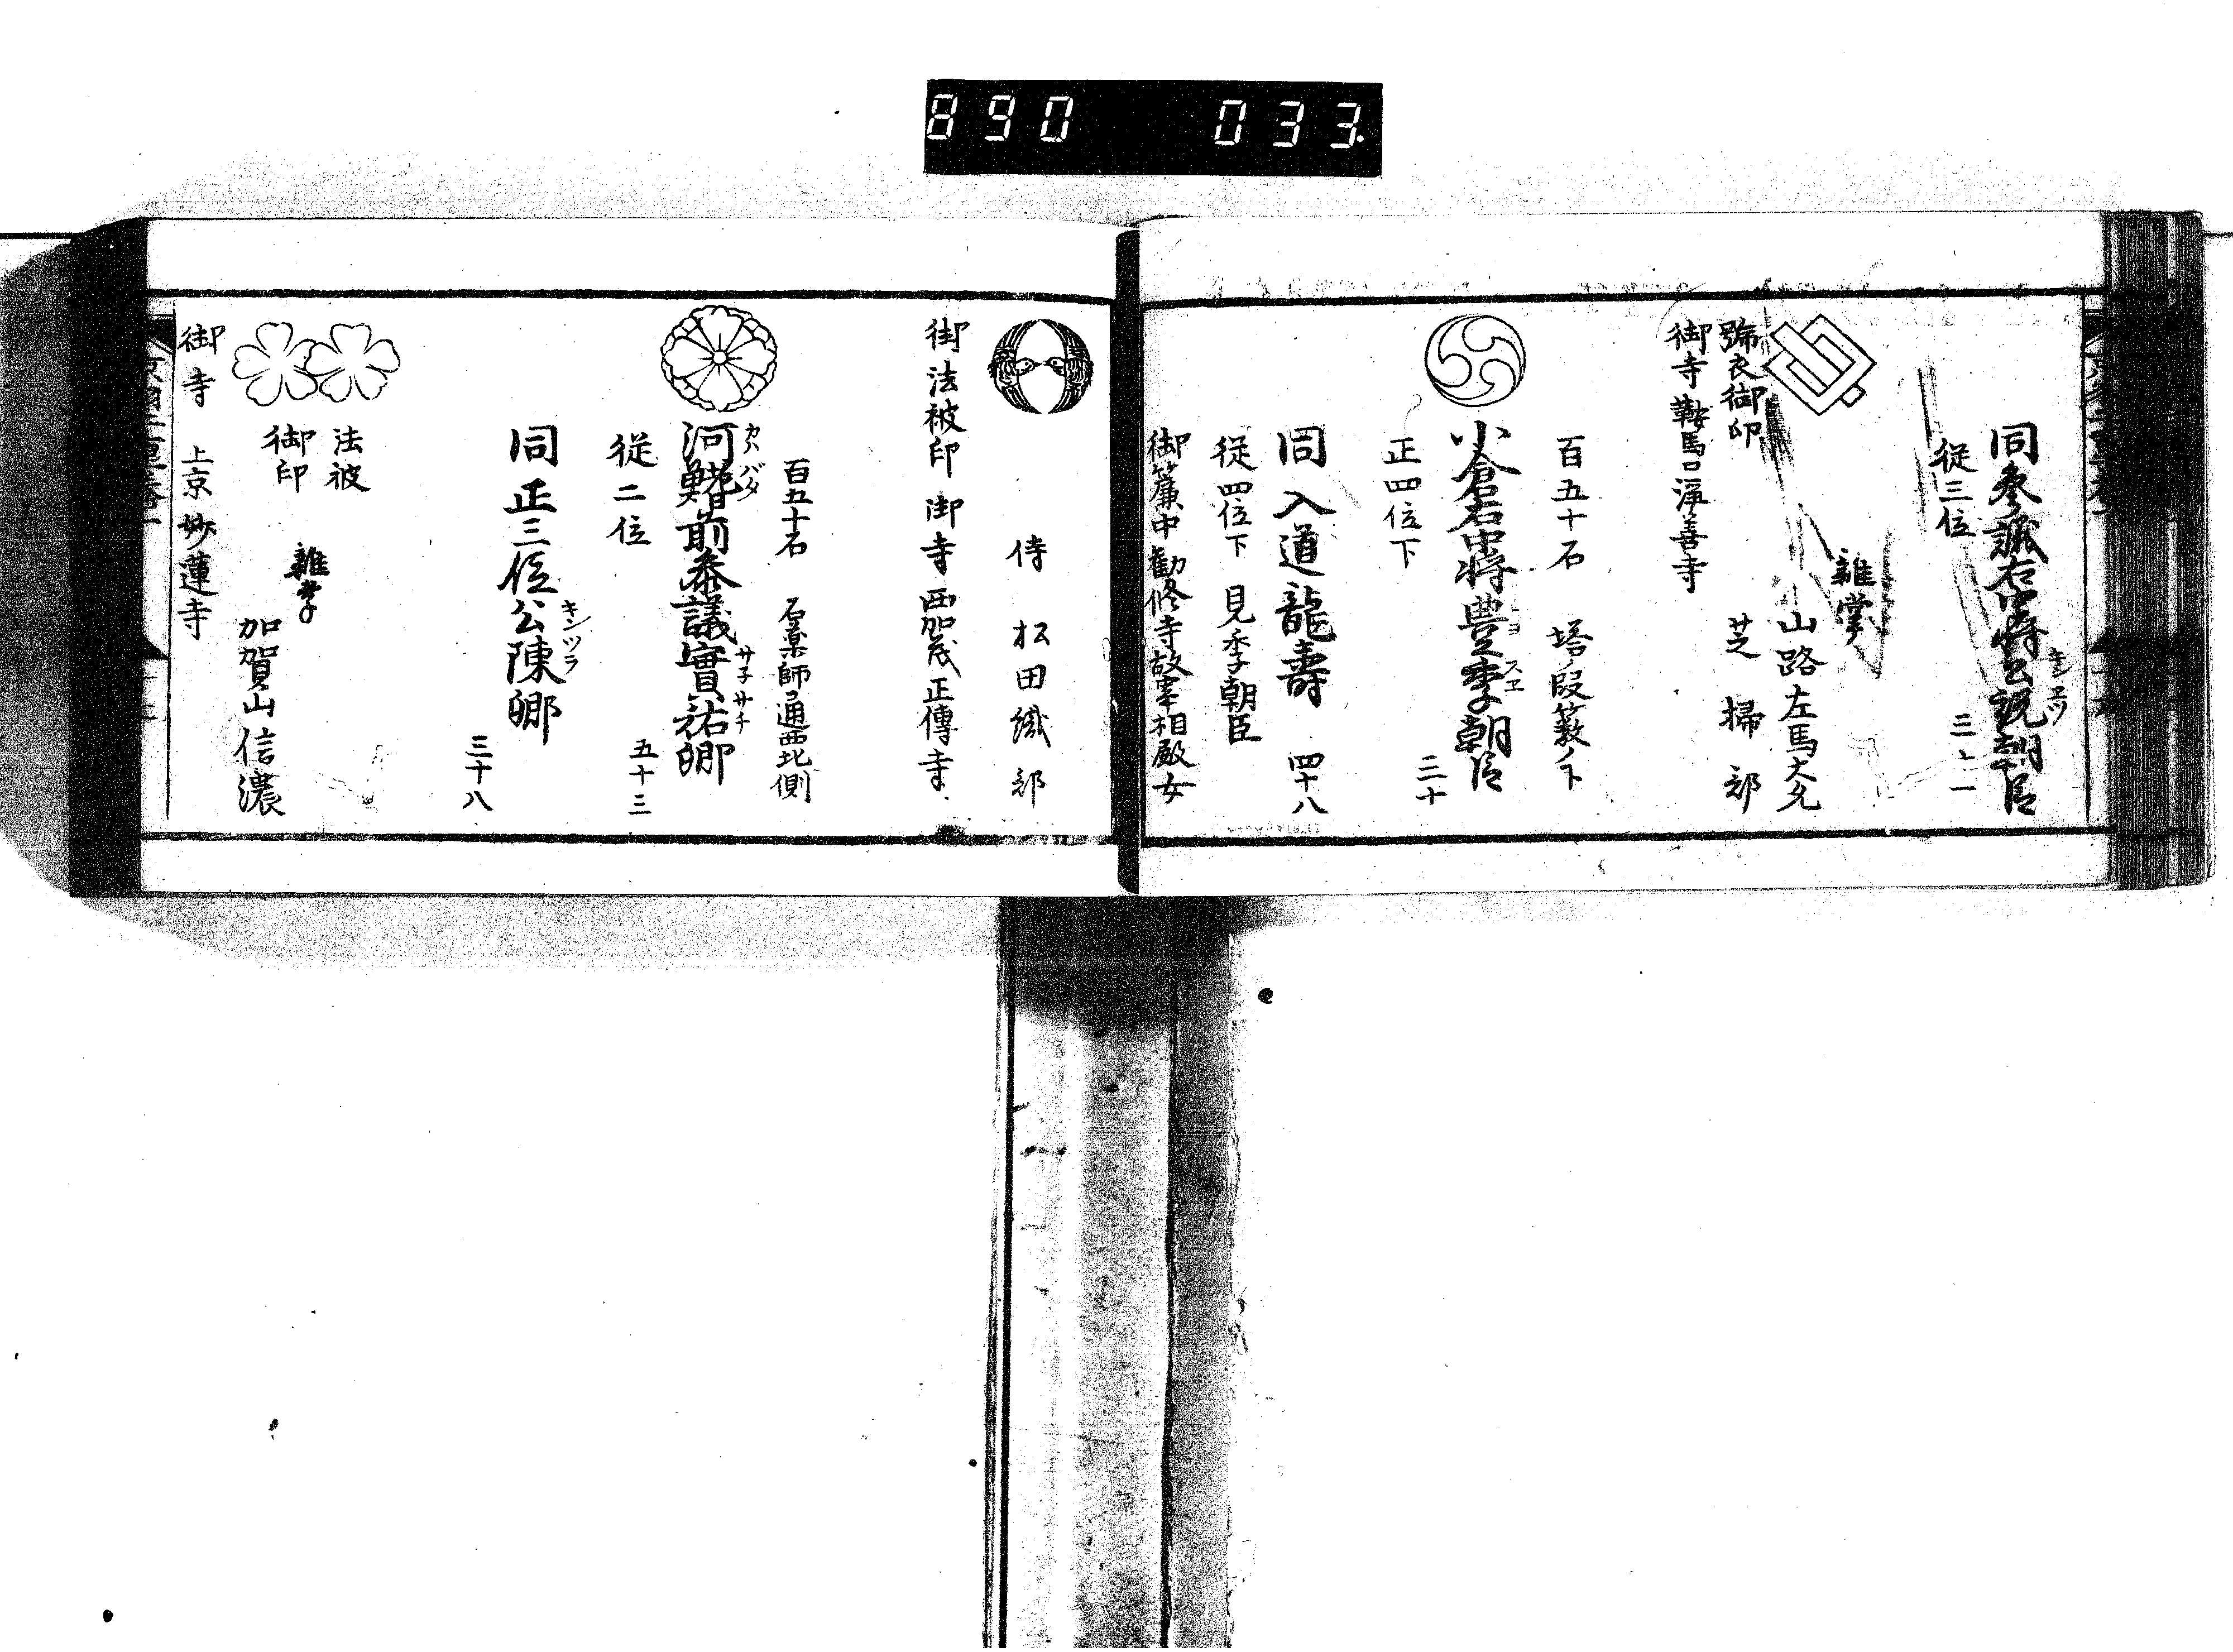 890 033
同参議右中将公説朝臣
キンエツ
従三位
雑掌
山路左馬大允
芝掃部
號衣御印
御寺鞍馬口浄善寺
百五十石 塔ノ段藪ノ下
小倉右中将豊季朝臣
スヱ
正四位下 三十
同入道龍壽 四十八
従四位下 見季朝臣
御簾中勧修寺故宰相殿女
侍 松田織部
御法被印 御寺 西加茂正傳寺
百五十石 石薬師通西北側
河鰭前参議實祐卿
カハバタ サネサチ
従二位 五十三
同正三位公陳卿
キンツラ
三十八
法被
御印
雑掌
加賀山信濃
御寺 上京妙蓮寺